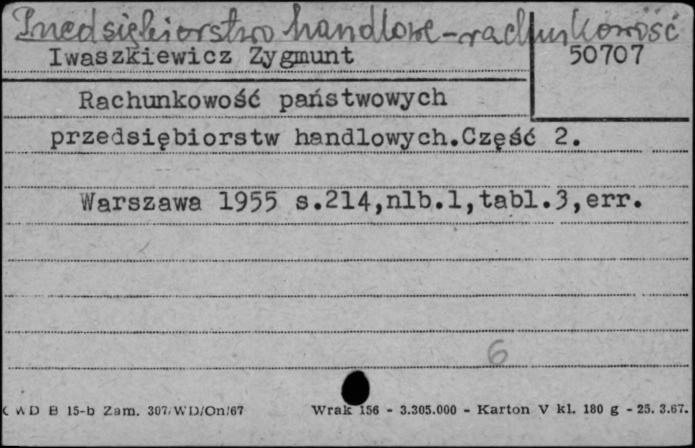 Przedsiębiorstwo handlowe-rachunkowość
Iwaszkiewicz Zygmunt
50707
Rachunkowość państwowych
przedsiębiorstw handlowych.Część 2.
Warszawa 1955 s.214,nlb.1,tabl.3,err.
6
CWD B 15-b Zam. 307/WD/On/67 Wrak 156 - 3.305.000 - Karton V kl. 180 g - 25. 3.67.